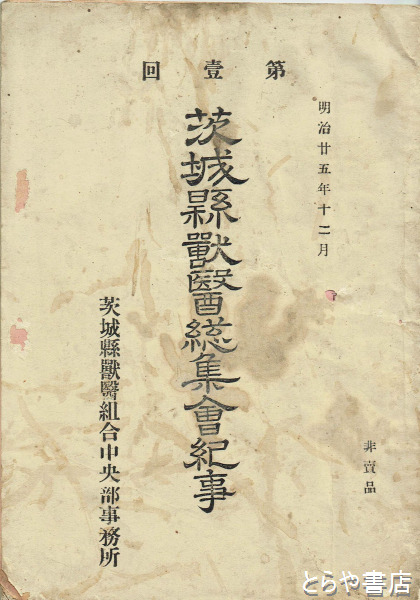 明治廿五年十二月
第壹回
茨城縣獸醫総集會紀事
茨城縣獸醫組合中央部事務所
非賣品
とらや書店